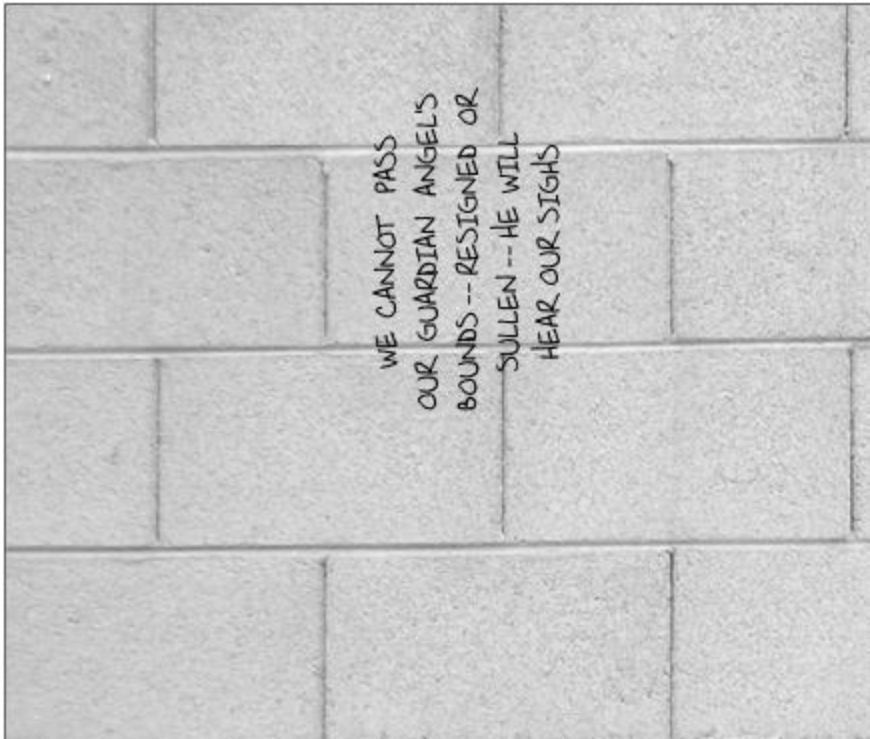 WE CANNOT PASS
OUR GUARDIAN ANGEL'S
BOUNDS -- RESIGNED OR
SULLEN -- HE WILL
HEAR OUR SIGHS